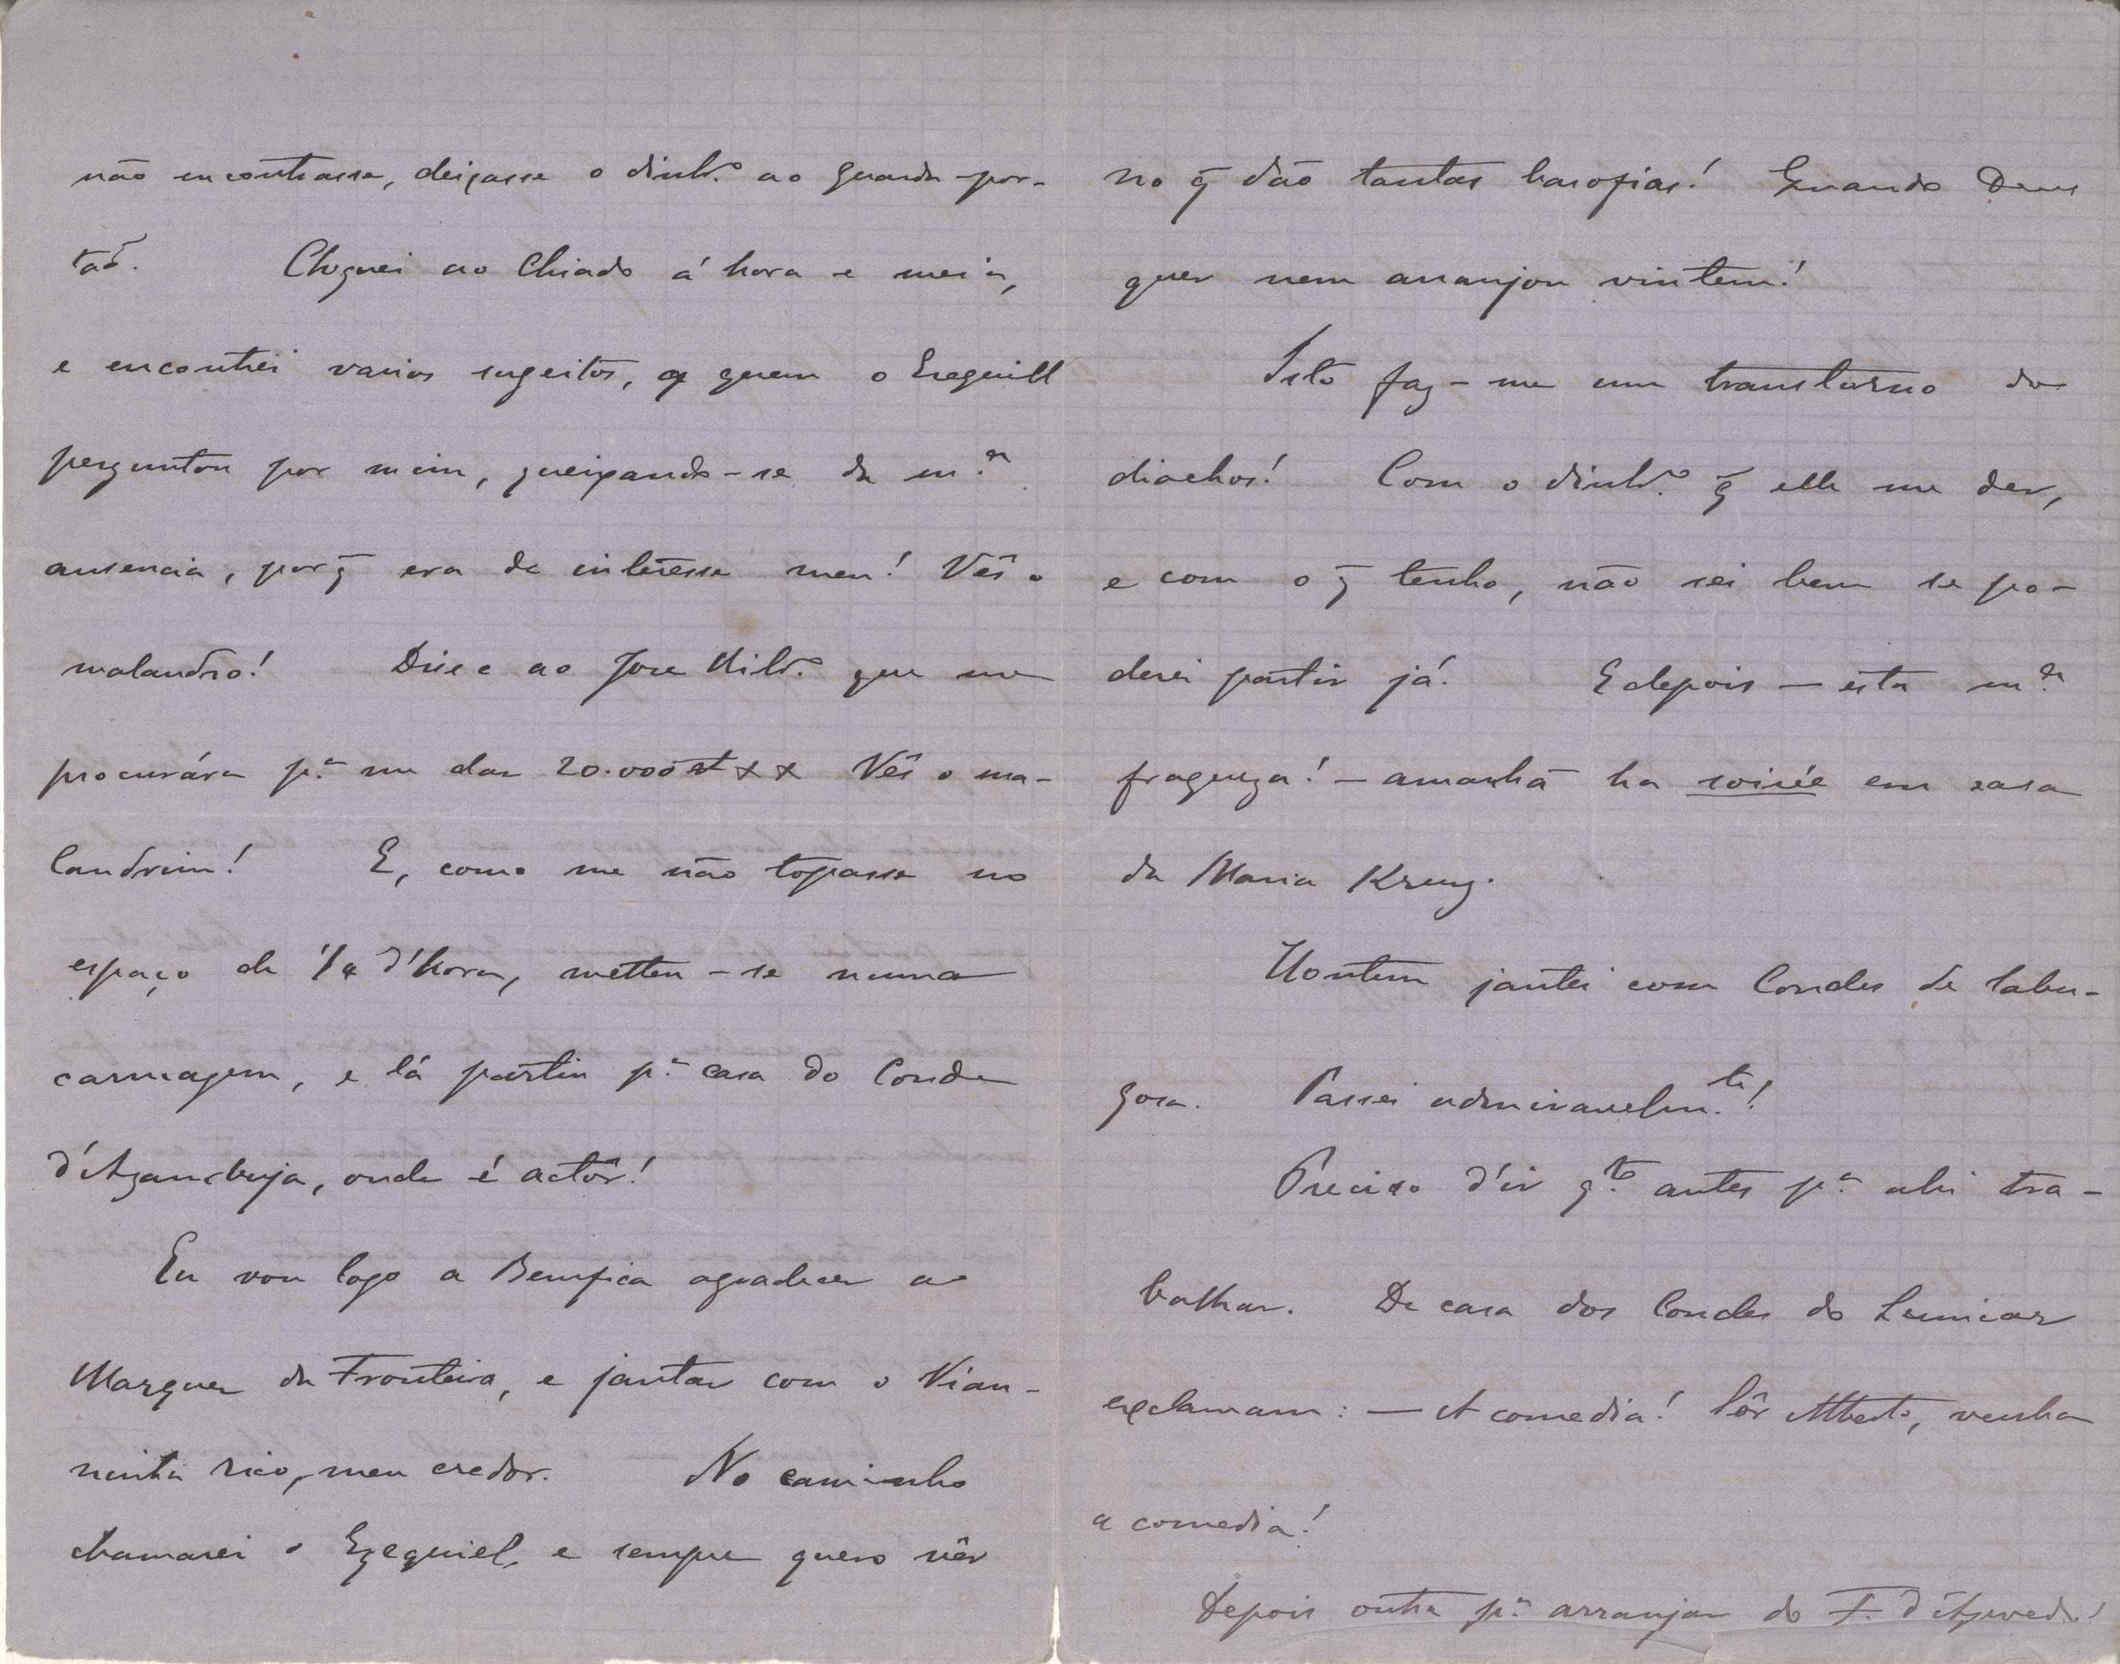 não encontrasse, deixasse o dinhr.º ao guarda-por-
tão. Cheguei ao Chiado á hora e meia,
e encontrei varios sugeitos, a quem o Ezequiel
perguntou por mim, queixando-se da m.ª
ausencia, porq̃ era de interesse meu! Vês o
malandro! Disse ao José Rib.º que me
procurára p.ª me dar 20.000 Vês o ma-
landrim! E, como me não topasse no
espaço de 1/4 d'hora, metteu-se numa
carruagem, e lá partiu p.ª casa do Conde
d'Azambuja, onde é actôr!
Eu vou logo a Bemfica agradecer ao
Marquez da Fronteira, e jantar com o Vian-
ninha rico, meu credor. No caminho
chamarei o Ezequiel, e sempre quero vêr
no q̃ dão tantas basofias! Quando Deus
quer nem arranjou vintem!
Isto faz-me um transtorno dos
diachos! Com o dinhr.º q̃ elle me der,
e com o q̃ tenho, não sei bem se po-
derei partir já. E depois — esta m.ª
fraqueza! — amanhã ha soirée em casa
da Maria Kruz.
Hontem jantei com Condes de Sabu-
gosa. Passei admiravelm.te!
Preciso d'ir q.to antes p.ª ahi tra-
balhar. De casa dos Condes do Lumiar
exclamam: — A comedia! Sôr Alberto, venha
a comedia!
Depois outra p.ª arranjar do F. d'Azevedo!